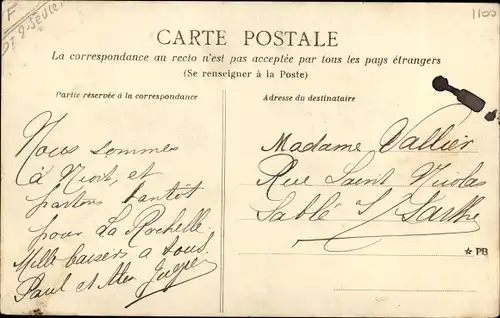 F
1100
CARTE POSTALE
La correspondance au recto n'est pas acceptée par tous les pays étrangers
(Se renseigner à la Poste)
Partie réservée à la correspondance
Nous sommes
à Niort, et
partons bientôt
pour La Rochelle
Mille baisers a tous
Paul et
Adresse du destinataire
Madame Vallier
Rue Saint Nicolas
Sablé s/ Sarthe
★ PB